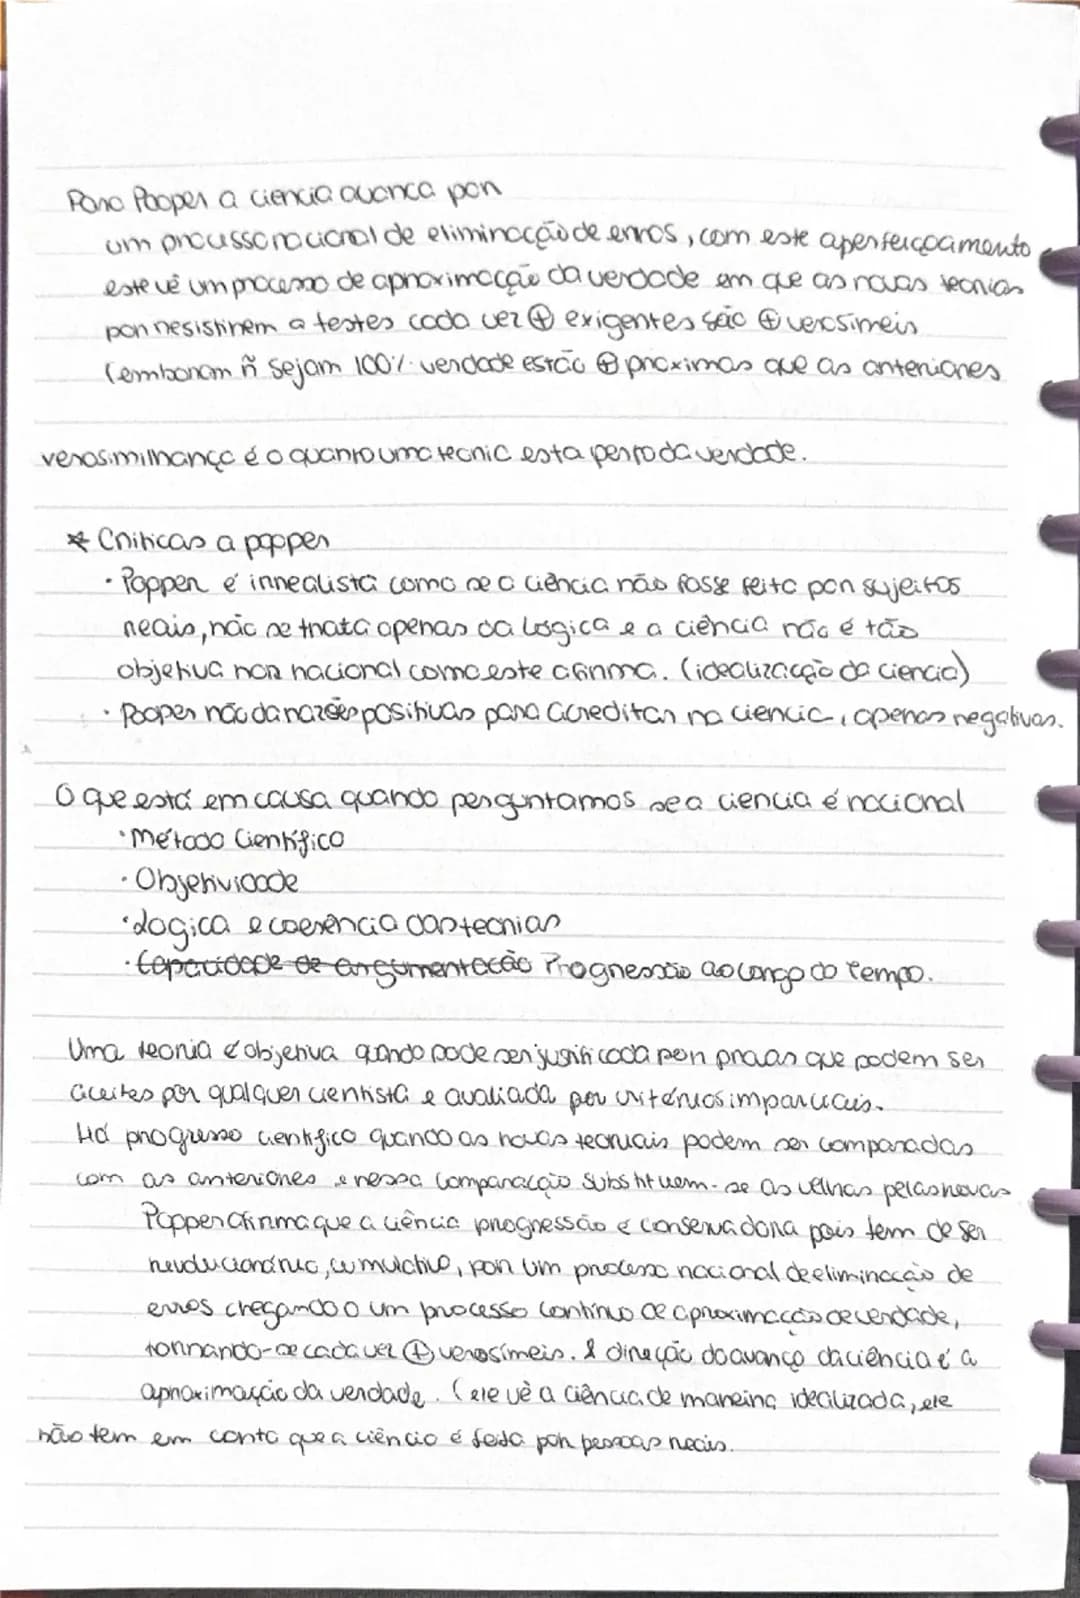 Para Pooper a ciencia avanca por
um processo racional de eliminacção de erros, com este aperfeiçoamento
este vê um processo de aproximacção da verdade em que as novas teorias
por resistirem a testes cada vez ⊕ exigentes são ⊕ verosímeis
(emboram ñ sejam 100% verdade estão ⊕ proximas que as anteriores
verosimilhança é o quanto uma teoria esta perto da verdade.
* Criticas a popper
· Popper é irrealista como se a ciência não fosse feita por sujeitos
reais, não se trata apenas da logica e a ciência não é tão
objetiva nem racional como este afirma. (idealizacção da ciencia)
· Pooper não da razões positivas para acreditar na ciencia, apenas negativas.
O que está em causa quando perguntamos se a ciencia é racional
· Método Científico
· Objetividade
· Logica e coerencia das teorias
· Capacidade de argumentacão Progressão ao longo do tempo.
Uma teoria é objetiva quando pode ser justificada por provas que podem ser
aceites por qualquer cientista e avaliada por critérios imparciais.
Há progresso cientifico quando as novas teoriais podem ser comparadas
com as anteriores e nessa comparacção substituem-se as velhas pelas novas
Popper afirma que a ciência progressão é conservadora pois tem de ser
revolucionário, cumulativo, por um processo racional de eliminacção de
erros chegando a um processo continuo de aproximacção de verdade,
tornando-se cada vez ⊕ verosímeis. A direção do avanço da ciência é a
aproximação da verdade. (ele vê a ciência de maneira idealizada, ele
não tem em conta que a ciência é feita por pessoas reais.